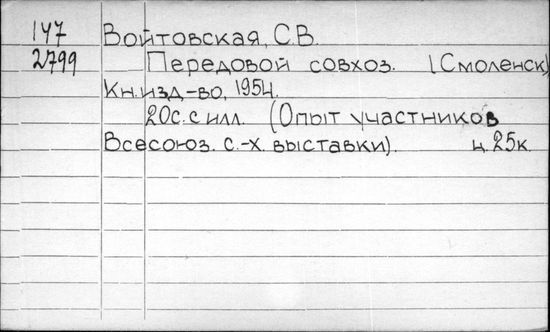 147 Войтовская, С.В.
2799 Передовой совхоз. (Смоленск)
Кн.изд-во, 1954.
20с. с илл. (Опыт участников
Всесоюз. с.-х. выставки). ц. 25к.